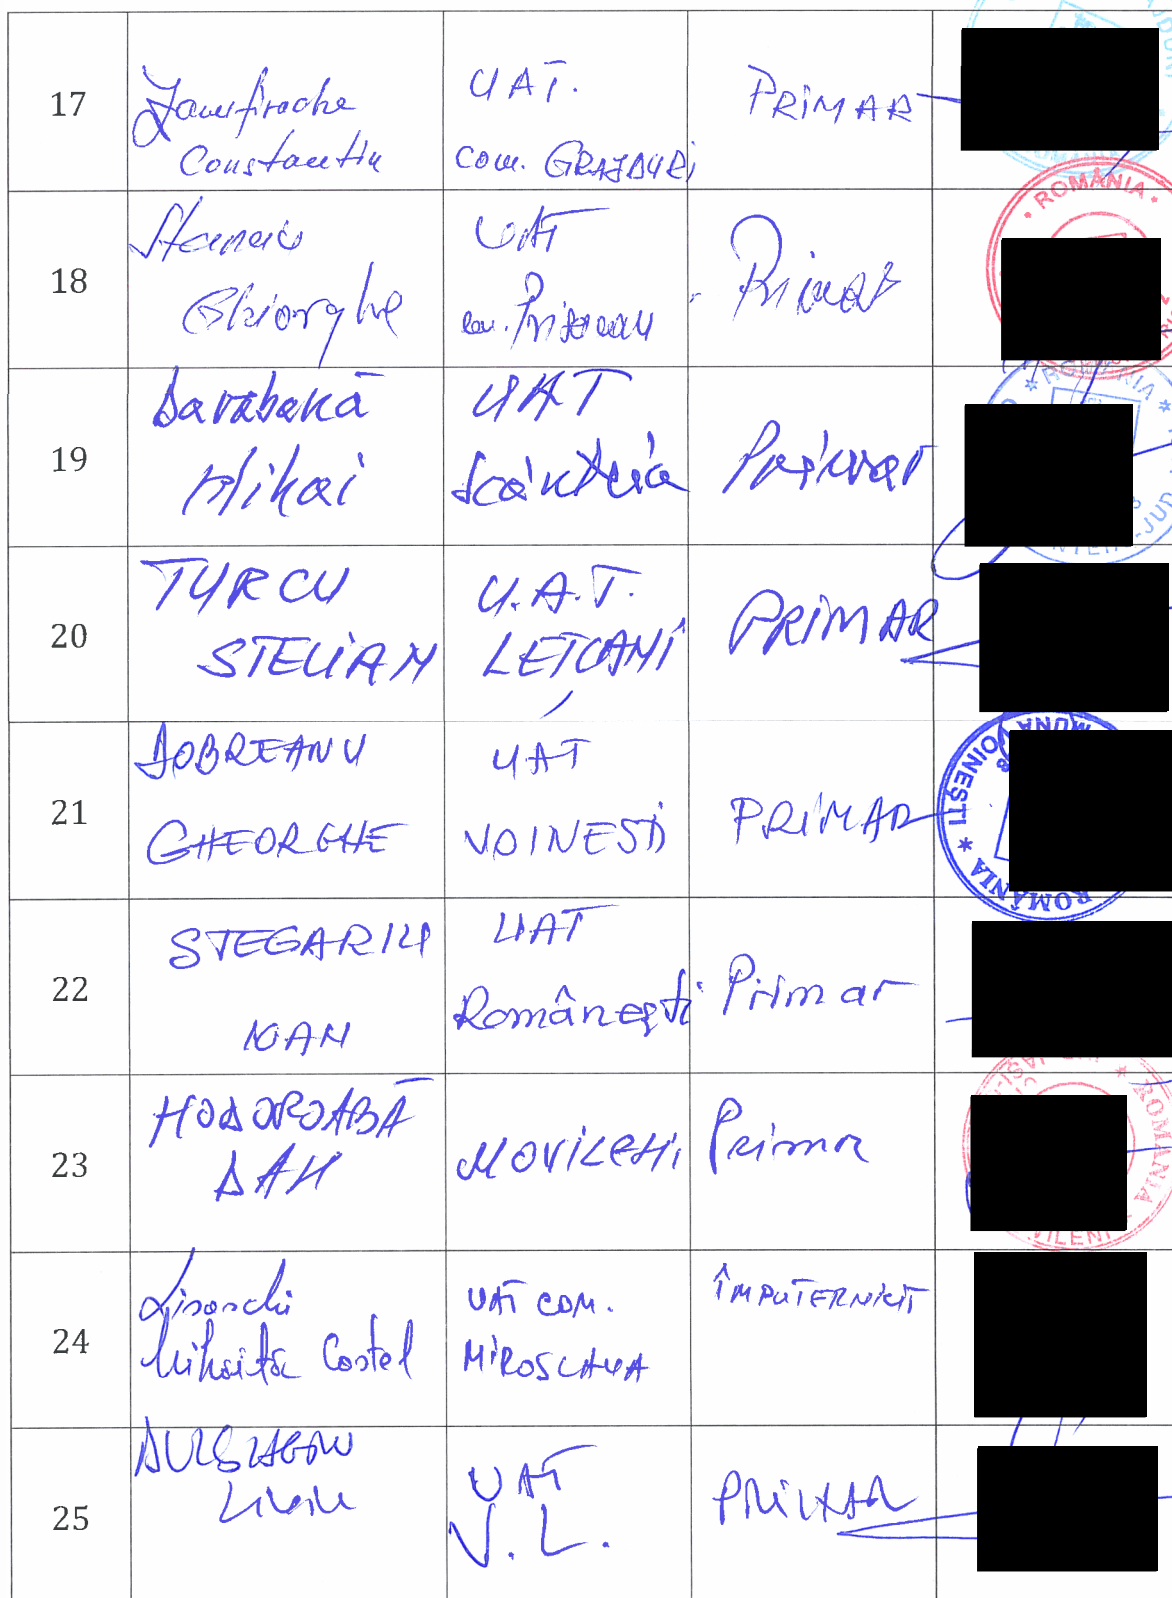 17
Zamfirache
Constantin
UAT.
com. GRAJDURI
PRIMAR
ROMÂNIA
18
Gheorghe
UAT
com.
Primar
19
Darabană
Mihai
UAT
Scânteia
Primar
20
TURCU
STELIAN
U.A.T.
LEȚCANI
PRIMAR
21
DOBREANU
GHEORGHE
UAT
VOINESTI
PRIMAR
VOINEȘTI
ROMÂNIA
22
STEGARIU
IOAN
UAT
Românești
Primar
23
HODOROABĂ
DAN
MOVILENI
Primar
ROMÂNIA
24
Mihaita Costel
UAT COM.
MIROSLAVA
ÎMPUTERNICIT
25
Liviu
UAT
V. L.
PRIMAR